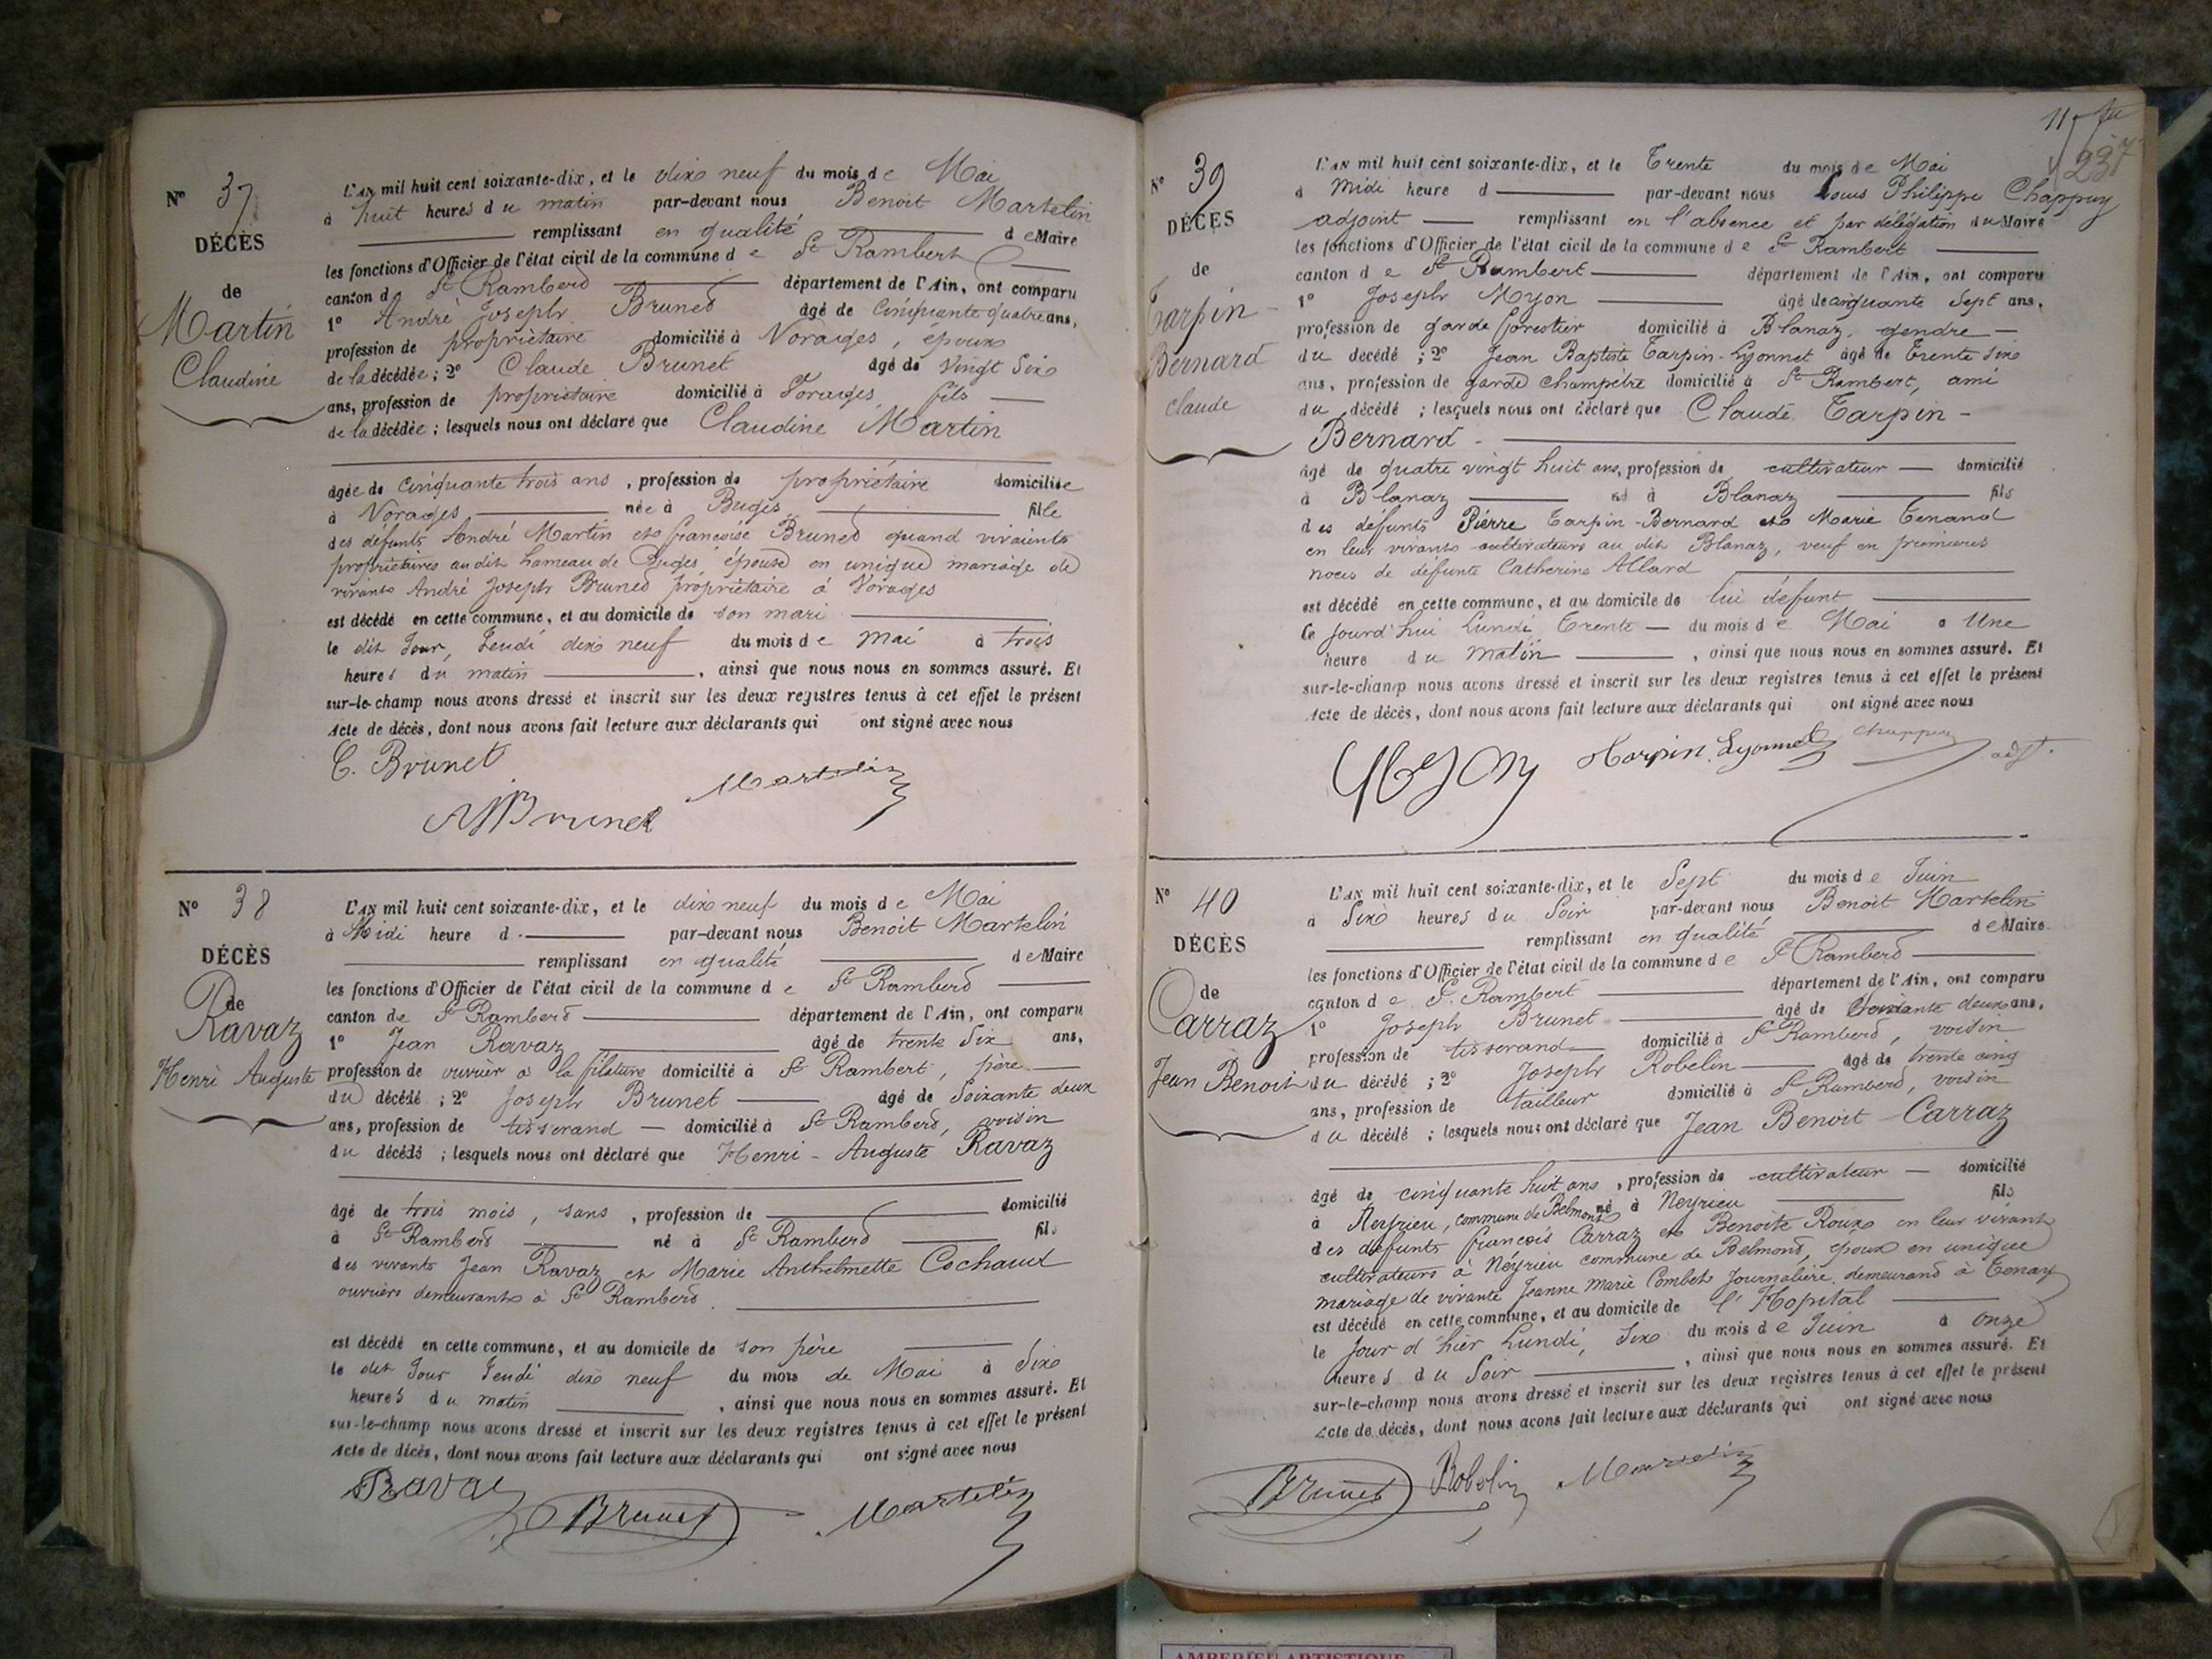 N° 37
DÉCÈS
de
Martin
Claudine
L'AN mil huit cent soixante-dix, et le dix neuf du mois de Mai
à huit heures du matin par-devant nous Benoit Martelin
remplissant en qualité de Maire
les fonctions d'Officier de l'état civil de la commune de St Rambert
canton de St Rambert département de l'Ain, ont comparu
1° André Joseph Brunet âgé de Cinquante quatre ans,
profession de propriétaire domicilié à Vorages, époux
de la décédée; 2° Claude Brunet âgé de Vingt Six
ans, profession de propriétaire domicilié à Vorages, fils
de la décédée; lesquels nous ont déclaré que Claudine Martin
âgée de Cinquante trois ans, profession de propriétaire domiciliée
à Vorages née à Buges fille
des défunts André Martin et françoise Brunet quand vivaients
propriétaires audit hameau de Buges, épouse en unique mariage de
vivant André Joseph Brunet propriétaire à Vorages
est décédé en cette commune, et au domicile de son mari
le dit Jour, Jeudi dix neuf du mois de Mai à trois
heures du matin, ainsi que nous nous en sommes assuré. Et
sur-le-champ nous avons dressé et inscrit sur les deux registres tenus à cet effet le présent
Acte de décès, dont nous avons fait lecture aux déclarants qui ont signé avec nous
C. Brunet
AJBrunet Martelin
N° 38
DÉCÈS
de
Ravaz
Henri Auguste
L'AN mil huit cent soixante-dix, et le dix neuf du mois de Mai
à Midi heure d par-devant nous Benoit Martelin
remplissant en qualité de Maire
les fonctions d'Officier de l'état civil de la commune de St Rambert
canton de St Rambert département de l'Ain, ont comparu
1° Jean Ravaz âgé de trente Six ans,
profession de ouvrier à la filature domicilié à St Rambert, père
du décédé; 2° Joseph Brunet âgé de Soixante deux
ans, profession de tisserand domicilié à St Rambert, voisin
du décédé; lesquels nous ont déclaré que Henri-Auguste Ravaz
âgé de trois mois, sans, profession de domicilié
à St Rambert né à St Rambert fils
des vivants Jean Ravaz et Marie Anthelmette Cochaud
ouvriers demeurants à St Rambert.
est décédé en cette commune, et au domicile de son père
le dit Jour Jeudi dix neuf du mois de Mai à Six
heures du matin, ainsi que nous nous en sommes assuré. Et
sur-le-champ nous avons dressé et inscrit sur les deux registres tenus à cet effet le présent
Acte de décès, dont nous avons fait lecture aux déclarants qui ont signé avec nous
Ravaz Brunet Martelin
237
N° 39
DÉCÈS
de
Tarpin-
Bernard
claude
L'AN mil huit cent soixante-dix, et le Trente du mois de Mai
à Midi heure d par-devant nous Louis Philippe Chappuy
adjoint remplissant en l'absence et par délégation du Maire
les fonctions d'Officier de l'état civil de la commune de St Rambert
canton de St Rambert département de l'Ain, ont comparu
1° Joseph Myon âgé de cinquante Sept ans,
profession de garde forestier domicilié à Blanaz, gendre
du décédé; 2° Jean Baptiste Tarpin-Lyonnet âgé de Trente Six
ans, profession de garde champêtre domicilié à St Rambert, ami
du décédé; lesquels nous ont déclaré que Claude Tarpin-
Bernard.
âgé de quatre vingt huit ans, profession de cultivateur domicilié
à Blanaz né à Blanaz fils
des défunts Pierre Tarpin-Bernard et Marie Tenand
en leur vivants cultivateurs au dit Blanaz, veuf en premieres
noces de défunte Catherine Allard
est décédé en cette commune, et au domicile de lui défunt
le jourd'hui Lundi Trente du mois de Mai à Une
heure du matin, ainsi que nous nous en sommes assuré. Et
sur-le-champ nous avons dressé et inscrit sur les deux registres tenus à cet effet le présent
Acte de décès, dont nous avons fait lecture aux déclarants qui ont signé avec nous
Myon Tarpin. Lyonnet Chappuy adjt.
N° 40
DÉCÈS
de
Carraz
Jean Benoit
L'AN mil huit cent soixante-dix, et le Sept du mois de Juin
à Six heures du Soir par-devant nous Benoit Martelin
remplissant en qualité de Maire
les fonctions d'Officier de l'état civil de la commune de St Rambert
canton de St Rambert département de l'Ain, ont comparu
1° Joseph Brunet âgé de Soixante deux ans,
profession de tisserand domicilié à St Rambert, voisin
du décédé; 2° Joseph Robelin âgé de trente cinq
ans, profession de tailleur domicilié à St Rambert, voisin
du décédé; lesquels nous ont déclaré que Jean Benoit Carraz
âgé de cinquante huit ans, profession de cultivateur domicilié
à Neyrieu, commune de Belmont né à Neyrieu fils
des défunts françois Carraz et Benoite Roux en leur vivant
cultivateurs à Neyrieu commune de Belmont, époux en unique
mariage de vivante Jeanne Marie Combet Journalière demeurant à Tenay
est décédé en cette commune, et au domicile de l'Hopital
le Jour d'hier Lundi, Six du mois de Juin à onze
heures du Soir, ainsi que nous nous en sommes assuré. Et
sur-le-champ nous avons dressé et inscrit sur les deux registres tenus à cet effet le présent
Acte de décès, dont nous avons fait lecture aux déclarants qui ont signé avec nous
Brunet Robelin Martelin
AMBERIEU ARTISTIQUE